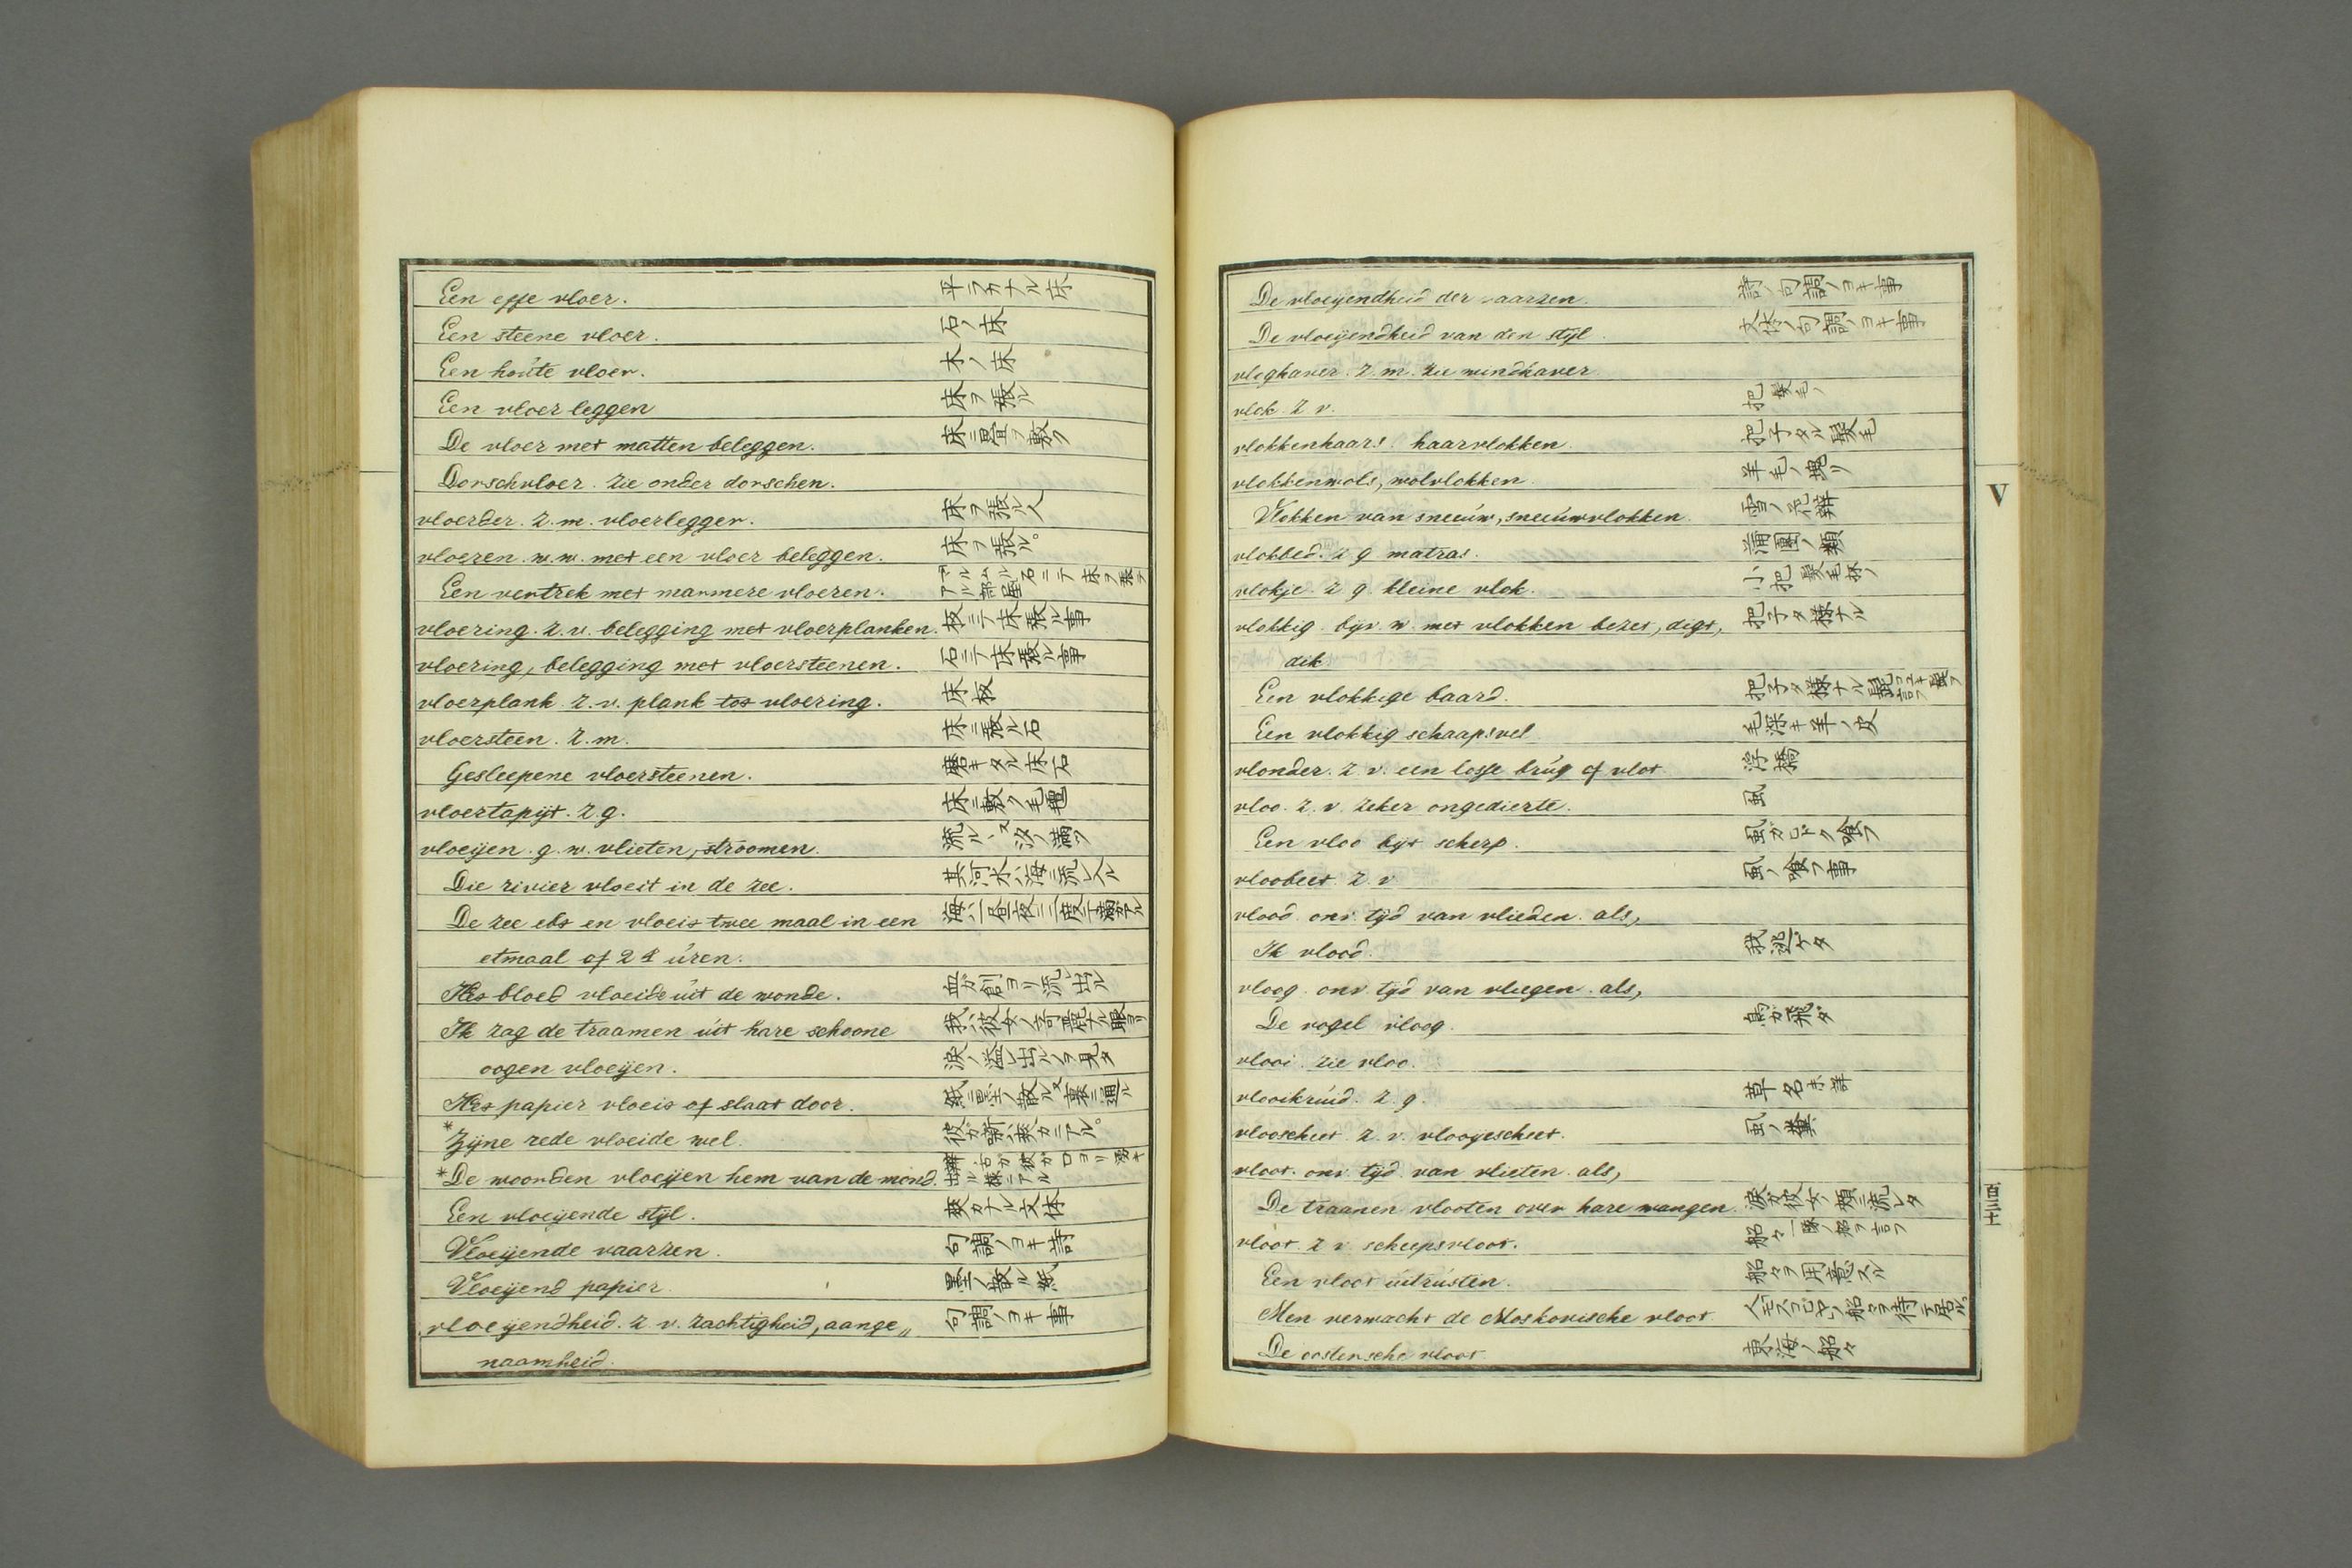 Een effe vloer. 平ラカナル床
Een steene vloer. 石ノ床
Een houte vloer. 木ノ床
Een vloer leggen 床ヲ張ル
De vloer met matten beleggen. 床ニ畳ヲ敷ク
Dorschvloer. Zie onder dorschen.
vloerder. z. m. vloerlegger. 床ヲ張ル人
vloeren. w. w. met een vloer beleggen. 床ヲ張ル。
Een vertrek met marmere vloeren. 石ニテ床ヲ張テアル部屋
vloering. z. v. belegging met vloerplanken. 板ニテ床張ル事
vloering, belegging met vloersteenen. 石ニテ床張ル事
vloerplank. z. v. plank tot vloering. 床板
vloersteen. z. m. 床ニ張ル石
Gesleepene vloersteenen. 磨キタル床石
vloertapijt. z. g. 床ニ敷ク毛氈
vloeijen. g. w. vlieten, stroomen. 流ルヽ又汐ノ満ツ
Die rivier vloeit in de zee. 其河水ハ海ニ流レ入ル
De zee ebt en vloeit twee maal in een 海ハ一昼夜ニ二度
etmaal of 24 úren.
Het bloed vloeide úit de wonde. 血ガ創ヨリ流レ出ル
Ik zag de traamen úit hare schoone 我ハ彼女ノ奇麗ナル眼ヨリ
oogen vloeijen. 涙ノ溢レ出ルヲ見タ
Het papier vloeit of slaat door. 紙ニ墨ノ散ル又裏ニ通ル
*Zijne rede vloeide wel. 彼ガ噺ハ爽カニアル。
*De woorden vloeijen hem van de mond. 彼ガ口ヨリ湧キ出ル様ニアル
Een vloeijende stijl. 爽カナル文体
Vloeijende vaarzen. 句調ノヨキ詩
Vloeijend papier. 墨ノ散ル紙
vloeijendheid. z. v. zachtigheid, aange„ 句調ノヨキ事
naamheid.
De vloeijendheid der vaarzen. 詩ノ句調ノヨキ事
De vloeijendheid van den stijl. 文体ノ句調ノヨキ事
vloghaver. z. m. zie windhaver
vlok. z. v. 把 髪毛ノ
vlokkenhaars. haarvlokken. 把子タル髪毛
vlokkenwols, wolvlokken. 羊毛ノ塊リ
Vlokken van sneeúw, sneeúwvlokken. 雪ノ花辨
vlokbed. z. g. matras. 蒲團ノ類
vlokje. z. g. kleine vlok. 小把 髪毛抔ノ
vlokkig. bijv. w. met vlokken bezet, digt, 把子タ様ナル
dik.
Een vlokkige baard. 把子タ様ナル髭
Een vlokkig schaapsvel 毛深キ羊ノ皮
vlonder. z. v. een losse brúg of vlot. 浮橋
vloo. z. v. zeker ongedierte. 虱
Een vloo bijt scherp. 虱ガヒドク喰フ
vloobeet. z. v. 虱ノ喰フ事
vlood. onv. tijd van vlieden. als,
Ik vlood. 我逃ケタ
vloog. onv. tijd van vliegen. als,
De vogel vloog. 鳥ガ飛ダ
vlooi. zie vloo.
vlooikrúid. z. g. 草名未詳
vlooscheet. z. v. vloogescheet. 虱ノ糞
vloot. onv. tijd van vlieten. als,
De traanen vlooten over hare wangen. 涙ガ彼女ノ頬ニ流レタ
vloot. z. v. scheepsvloot. 船々
Een vloot úitrústen. 船々ヲ用意スル
Men verwacht de Moskovische vloot. 船々ヲ待テ居ル。
De oostersche vloot. 東海ノ船々
V
百三十